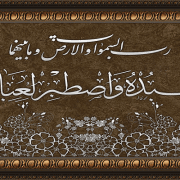 رب السموات والارض وما بينهما
عبده واصطبر لعبا